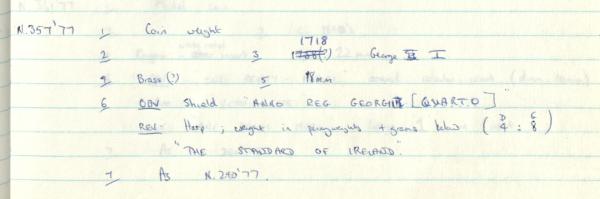 N.357'77 1 Coin weight
1718
2 3 1738(?) George II I
4 Brass (?) 5 18mm
6 OBV Shield "ANNO REG GEORGII [QUARTO]"
REV. Harp; weight in pennyweights + grams below (D 4 : G 8)
"THE STANDARD OF IRELAND".
7 As N.290'77.